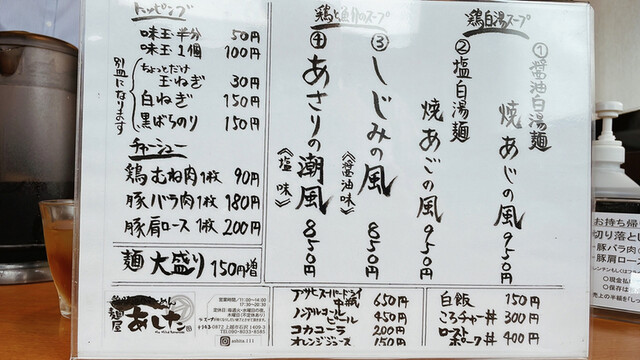 鶏白湯スープ
①醤油白湯麺
焼あじの風 950円
②塩白湯麺
焼あごの風 950円
③しじみの風 850円
《醤油味》
④あさりの潮風 850円
《塩味》
トッピング
味玉半分 50円
味玉1個 100円
別皿になります
ちょっとだけ玉ねぎ 30円
白ねぎ 150円
黒ばらのり 150円
チャーシュー
鶏むね肉1枚 90円
豚バラ肉1枚 180円
豚肩ロース1枚 200円
麺 大盛り 150円増
麺屋 あした
営業時間/11:00~14:00
17:30~20:30
アサヒスーパードライ中瓶 650円
ノンアルコールビール 450円
コカコーラ 200円
オレンジジュース 150円
白飯 150円
ころチャー丼 300円
ローストポーク丼 400円
お持ち帰り
切り落とし
・豚バラ肉
・豚肩ロース